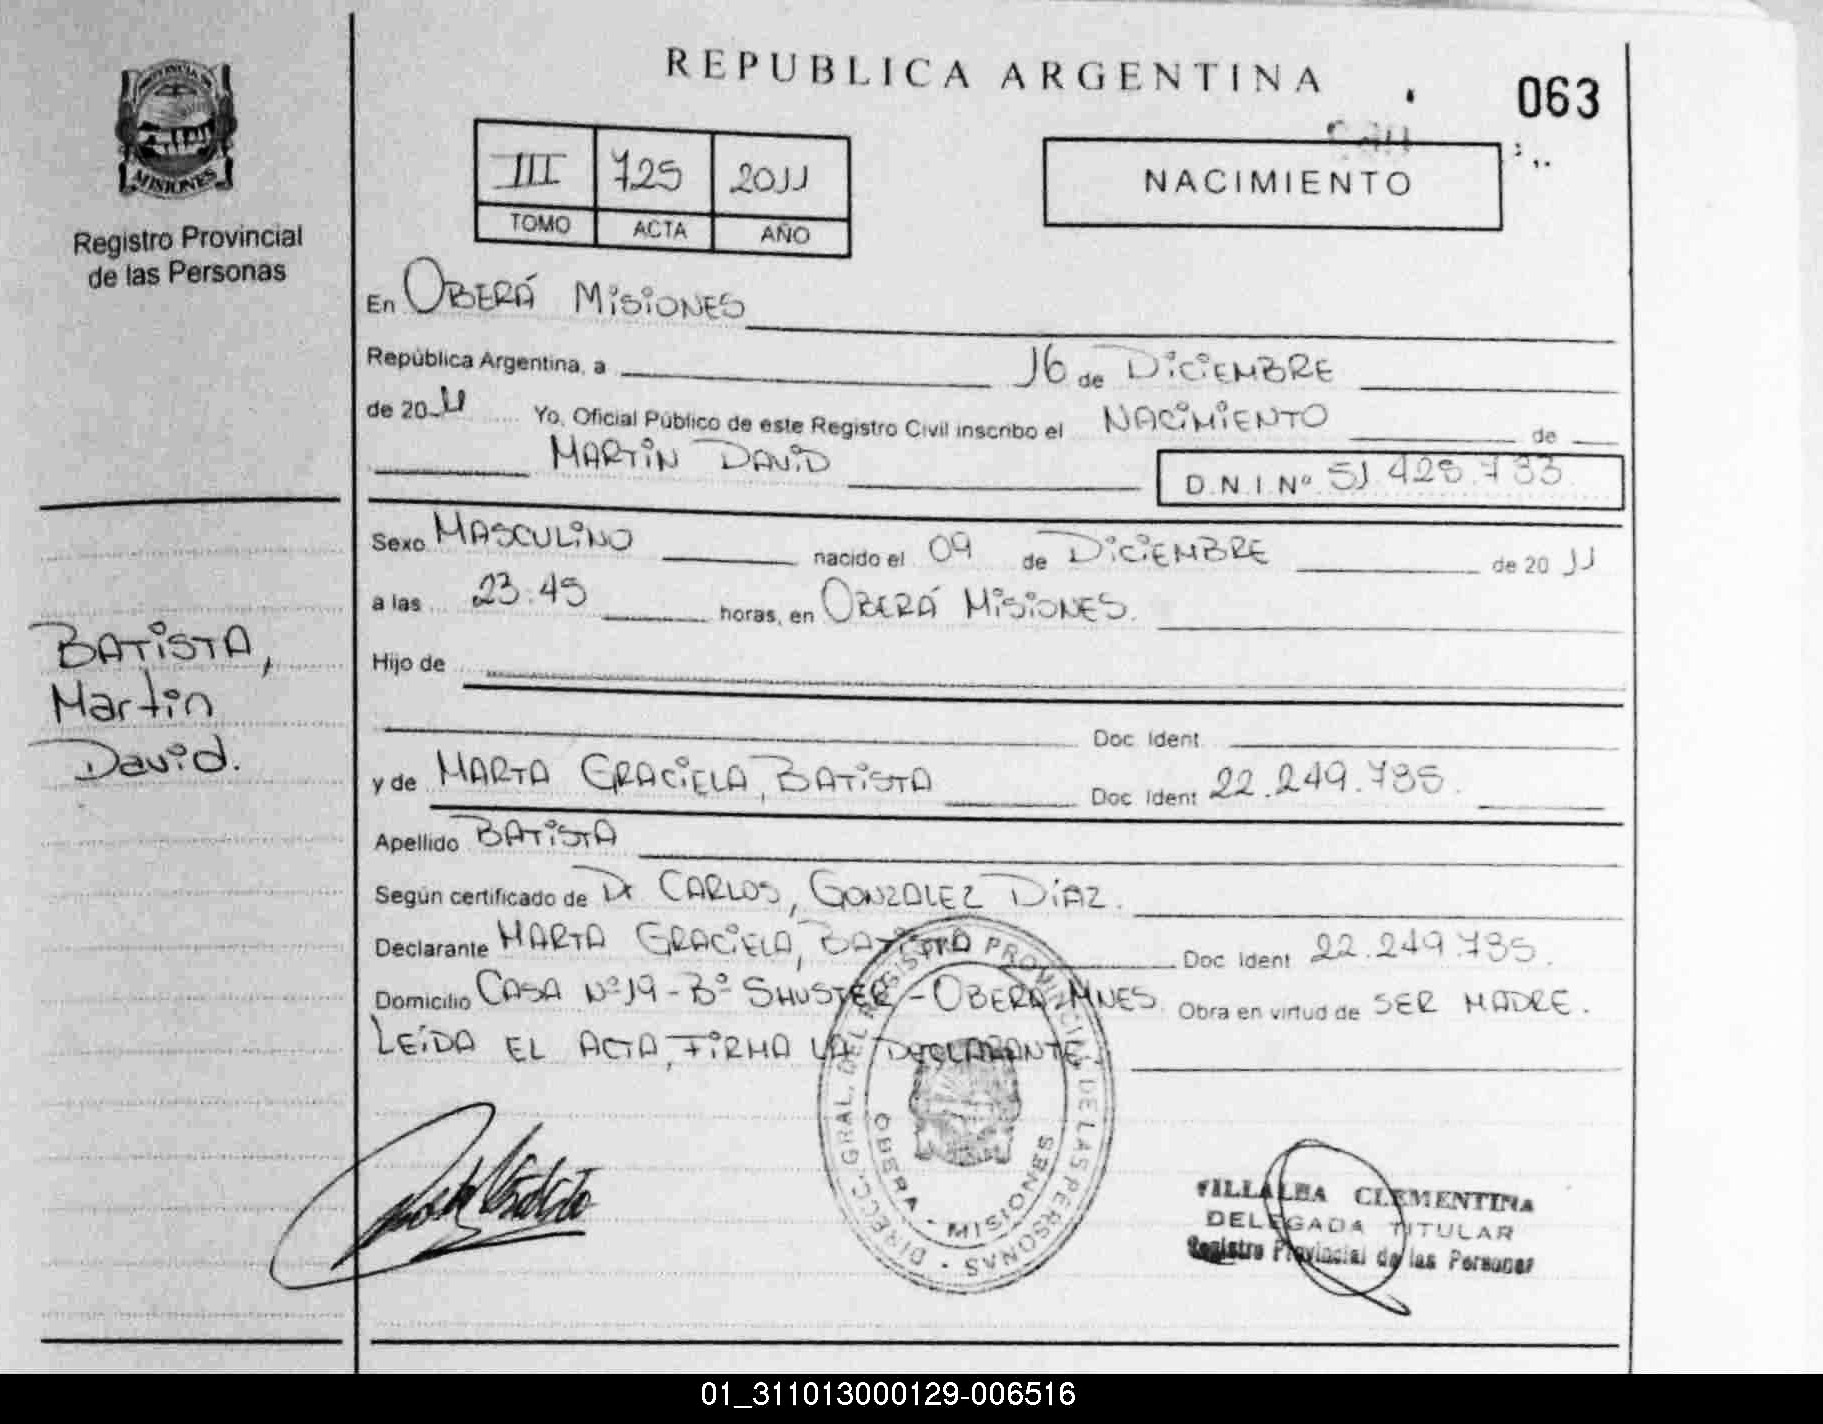 REPUBLICA ARGENTINA
063
PROVINCIA DE
MISIONES
Registro Provincial
de las Personas
III 725 2011
TOMO ACTA AÑO
NACIMIENTO
En OBERÁ MISIONES
República Argentina, a 16 de DICIEMBRE
de 20 11 Yo, Oficial Público de este Registro Civil inscribo el NACIMIENTO de
MARTIN DAVID D.N.I Nº 51.428.733
Sexo MASCULINO nacido el 09 de DICIEMBRE de 20 11
a las 23:45 horas, en OBERÁ MISIONES.
Hijo de
Doc. Ident
y de MARTA GRACIELA, BATISTA Doc. Ident 22.249.735.
Apellido BATISTA
Según certificado de Dr CARLOS, GONZALEZ DÍAZ.
Declarante MARTA GRACIELA, BATISTA Doc. Ident 22.249.735.
Domicilio CASA Nº19-Bº SHUSTER-OBERA-MNES. Obra en virtud de SER MADRE.
LEÍDA EL ACTA, FIRMA LA DECLARANTE
BATISTA,
Martin
David.
DIRECC. GRAL. DEL REGISTRO PROVINCIAL DE LAS PERSONAS
OBERA - MISIONES
VILLALBA CLEMENTINA
DELEGADA TITULAR
Registro Provincial de las Personas
01_311013000129-006516